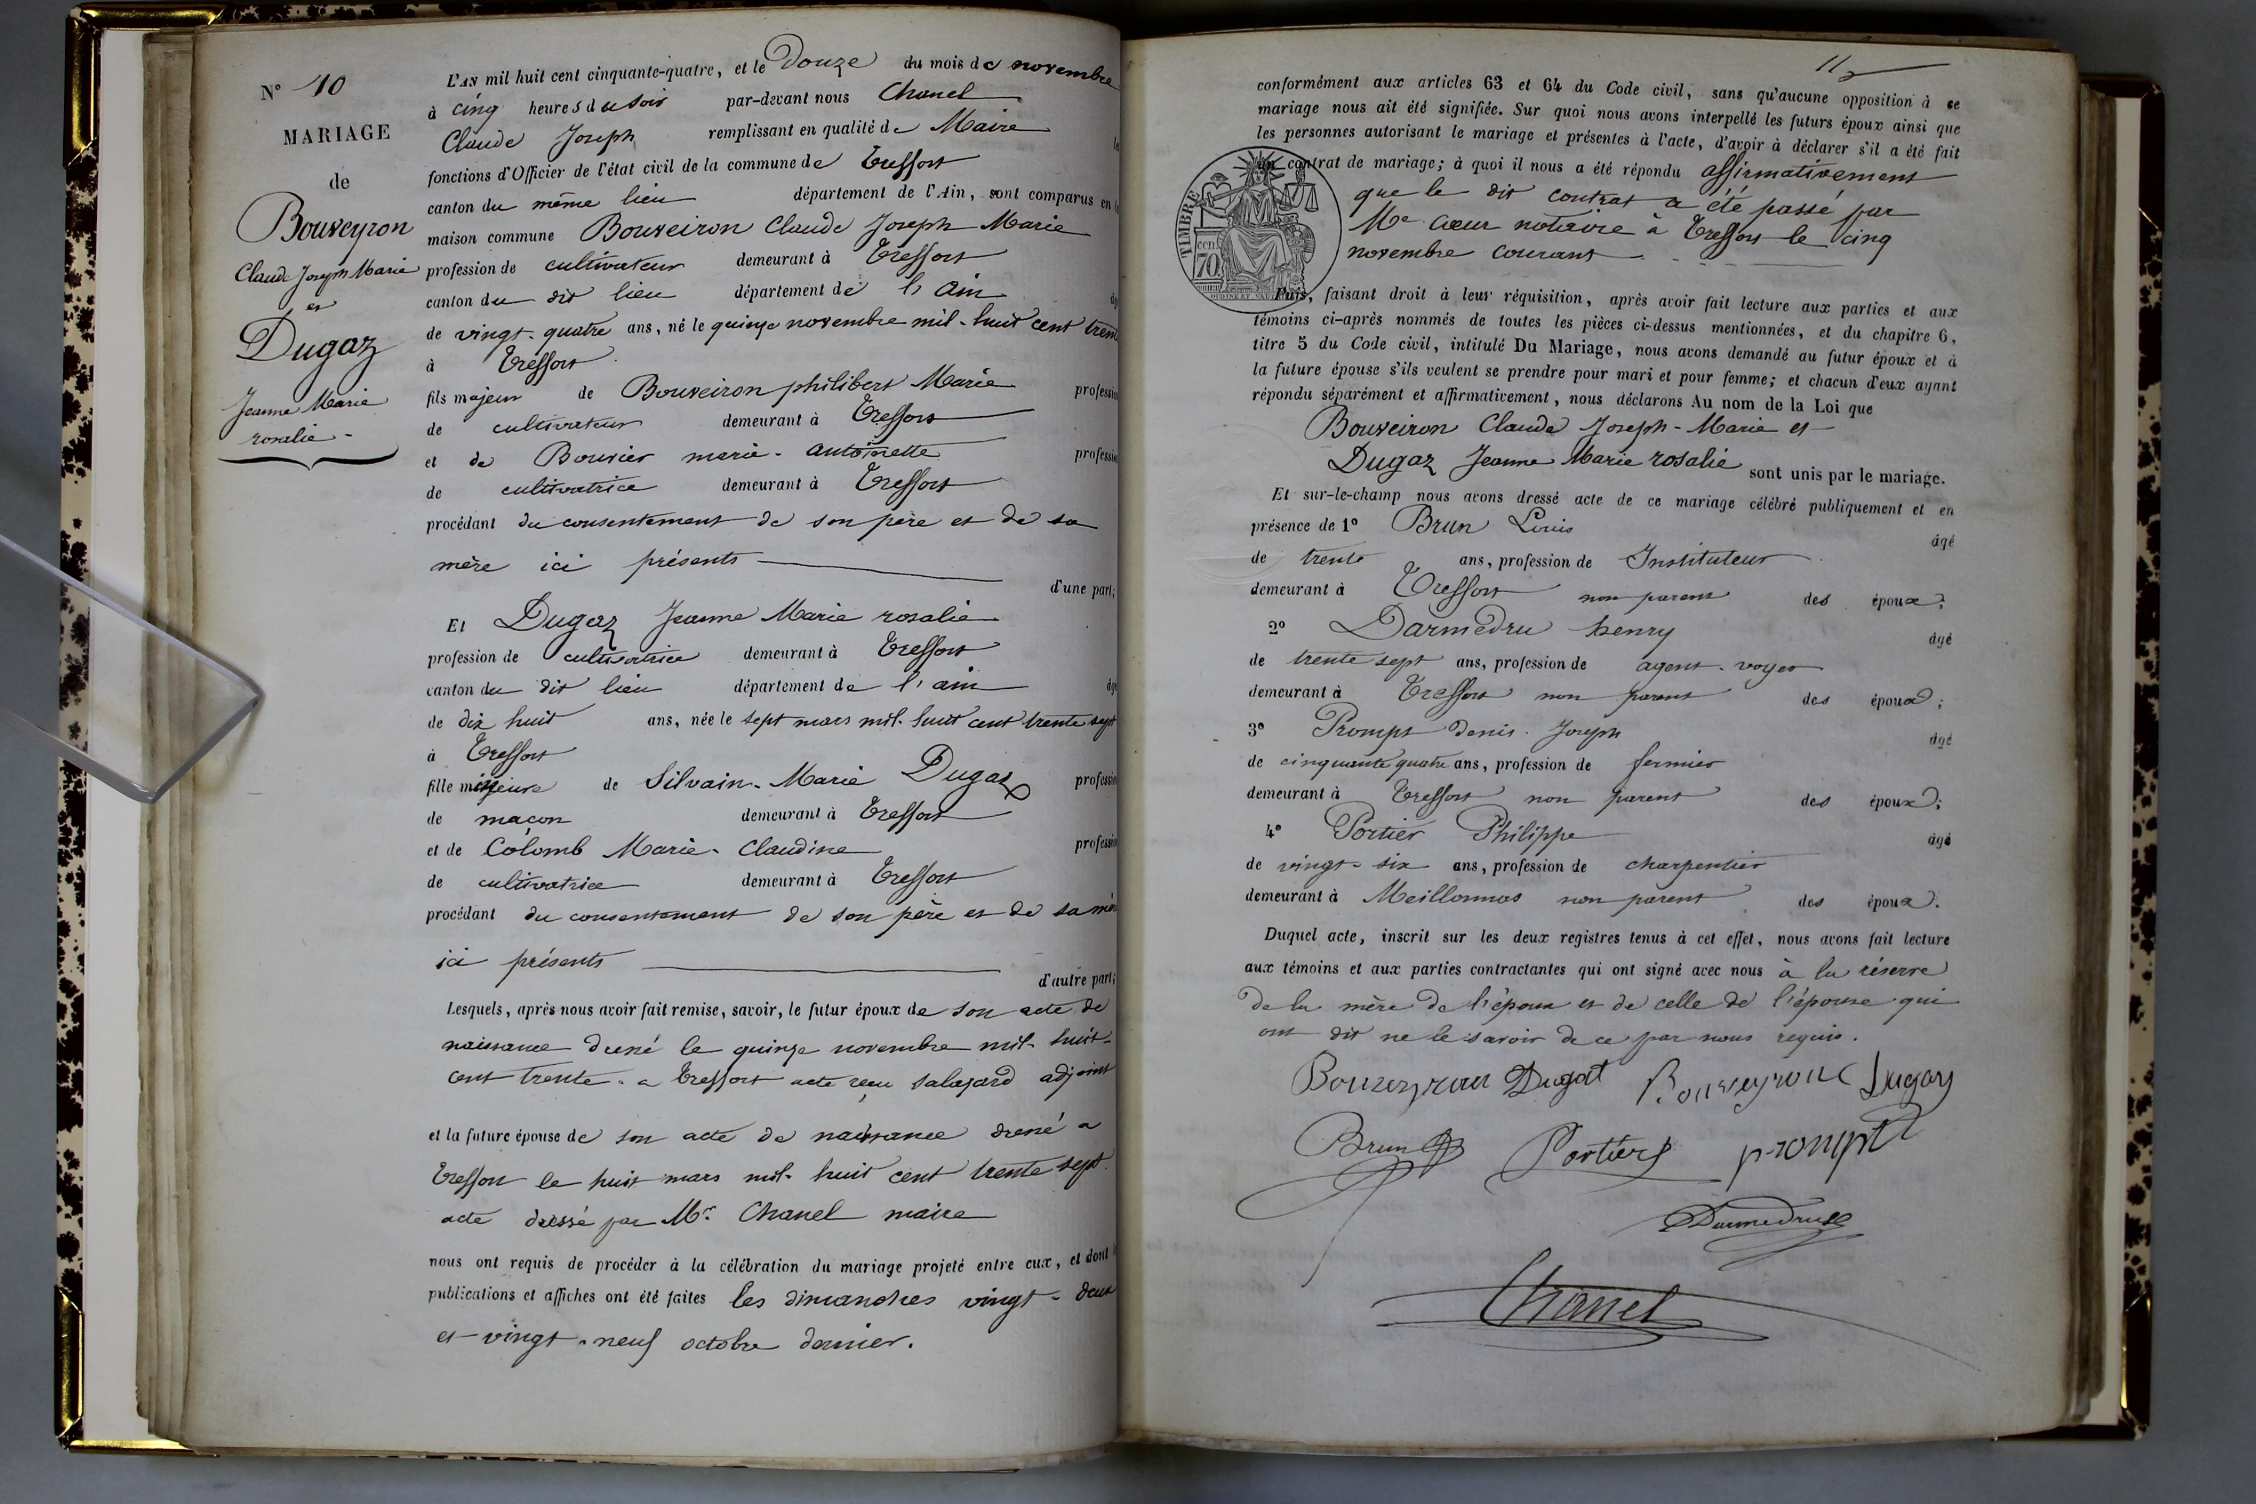 N° 10
MARIAGE
de
Bouveyron
Claude Joseph Marie
et
Dugaz
Jeanne Marie
rosalie
L'AN mil huit cent cinquante-quatre, et le douze du mois de novembre
à cinq heures du soir par-devant nous Chanel
Claude Joseph remplissant en qualité de Maire
fonctions d'Officier de l'état civil de la commune de Treffort
canton du même lieu département de l'Ain, sont comparus en
maison commune Bouveiron Claude Joseph Marie
profession de cultivateur demeurant à Treffort
canton du dit lieu département de l'ain
de vingt-quatre ans, né le quinze novembre mil-huit cent trente
à Treffort
fils majeur de Bouveiron philibert Marie profession
de cultivateur demeurant à Treffort
et de Bouvier marie-antoinette profession
de cultivatrice demeurant à Treffort
procédant du consentement de son père et de sa
mère ici présents
d'une part;
Et Dugaz Jeanne Marie rosalie
profession de cultivatrice demeurant à Treffort
canton du dit lieu département de l'ain âgé
de dix huit ans, née le sept mars mil-huit cent trente sept
à Treffort
fille mineure de Silvain-Marie Dugaz profession
de maçon demeurant à Treffort
et de Colomb Marie-Claudine profession
de cultivatrice demeurant à Treffort
procédant du consentement de son père et de sa mère
ici présents
d'autre part;
Lesquels, après nous avoir fait remise, savoir, le futur époux de son acte de
naissance dressé le quinze novembre mil-huit-
cent trente. a Treffort acte reçu salazard adjoint
et la future épouse de son acte de naissance dressé a
Treffort le huit mars mil-huit cent trente sept.
acte dressé par Mr. Chanel maire
nous ont requis de procéder à la célébration du mariage projeté entre eux, et dont
publications et affiches ont été faites les dimanches vingt-deux
et vingt-neuf octobre dernier.
11
conformément aux articles 63 et 64 du Code civil, sans qu'aucune opposition à ce
mariage nous ait été signifiée. Sur quoi nous avons interpellé les futurs époux ainsi que
les personnes autorisant le mariage et présentes à l'acte, d'avoir à déclarer s'il a été fait
un contrat de mariage; à quoi il nous a été répondu affirmativement
que le dit contrat a été passé par
Me Cœur notaire à Treffort le cinq
novembre courant.
TIMBRE
cen
70
Puis, faisant droit à leur réquisition, après avoir fait lecture aux parties et aux
témoins ci-après nommés de toutes les pièces ci-dessus mentionnées, et du chapitre 6,
titre 5 du Code civil, intitulé Du Mariage, nous avons demandé au futur époux et à
la future épouse s'ils veulent se prendre pour mari et pour femme; et chacun d'eux ayant
répondu séparément et affirmativement, nous déclarons Au nom de la Loi que
Bouveiron Claude Joseph-Marie et
Dugaz Jeanne Marie rosalie sont unis par le mariage.
Et sur-le-champ nous avons dressé acte de ce mariage célébré publiquement et en
présence de 1° Brun Louis âgé
de trente ans, profession de Instituteur
demeurant à Treffort non parent des époux;
2° Darmedru henry âgé
de trente sept ans, profession de agent-voyer
demeurant à Treffort non parent des époux;
3° Prompt denis-Joseph âgé
de cinquante quatre ans, profession de fermier
demeurant à Treffort non parent des époux;
4° Portier Philippe âgé
de vingt-six ans, profession de charpentier
demeurant à Meillonnas non parent des époux.
Duquel acte, inscrit sur les deux registres tenus à cet effet, nous avons fait lecture
aux témoins et aux parties contractantes qui ont signé avec nous à la réserve
de la mère de l'époux et de celle de l'épouse qui
ont dit ne le savoir de ce par nous requis.
Bouveyron Dugat Bouveyron Dugaz
Brun Portier prompt
Darmedru
Chanel